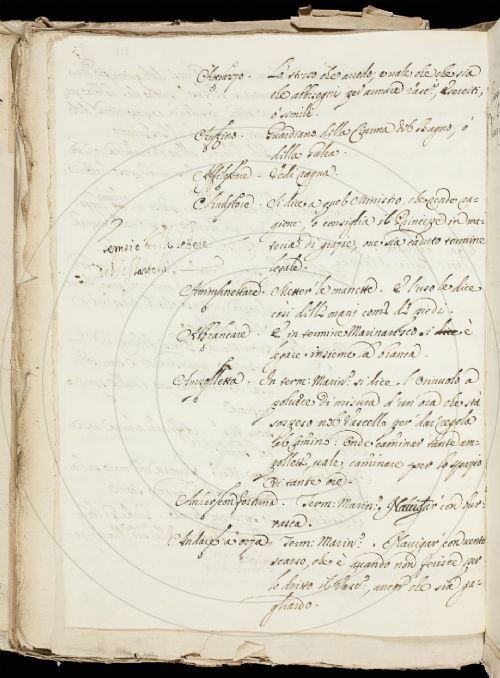 Attrezzo. La stesso che arredo; e vale che che sia
che abbisogni per armare Vasc.i, Eserciti,
o simili.
Aguzino. Guardiano della Ciurma del Bagno, o
della Galea.
Vedi paqua.
Auditore. Si dice a quel Ministro, che rende ra-
gione: o consiglia il Principe in ma-
teria di grazie, ove sia caduto termine
legale.
Ammanettare. Metter le manette. E l'uso le dice
così delle mani come de piedi.
Abbrancare. È in termine Marinaresco si dice è
legare insieme a branca.
Ampolletta. In term: Marin.o si dice l'Oriuolo a
polvere di misura d'un'ora che stà
sospeso nel Vascello per dar regola
del camino: Onde caminar tante am-
pollette, vale caminare per lo spazio
di tante ore.
Andar con fortuna. Term: Marin.o Navigar con bur-
rasca.
Andare a orza. Term: Marin.o. Navigar con vento
scarso, che è quando non ferisce per
lo dritto il Vasc.o, ancor che sia ga-
gliardo.